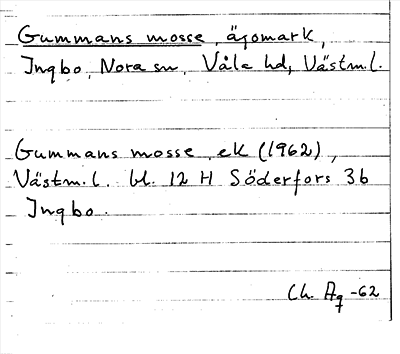 Gummans mosse, ägomark,
Ingbo, Nora sn, Våla hd, Västm.l.
Gummans mosse, ek (1962),
Västm.l. bl. 12 H Söderfors 3b
Ingbo.
Ch. Ag -62